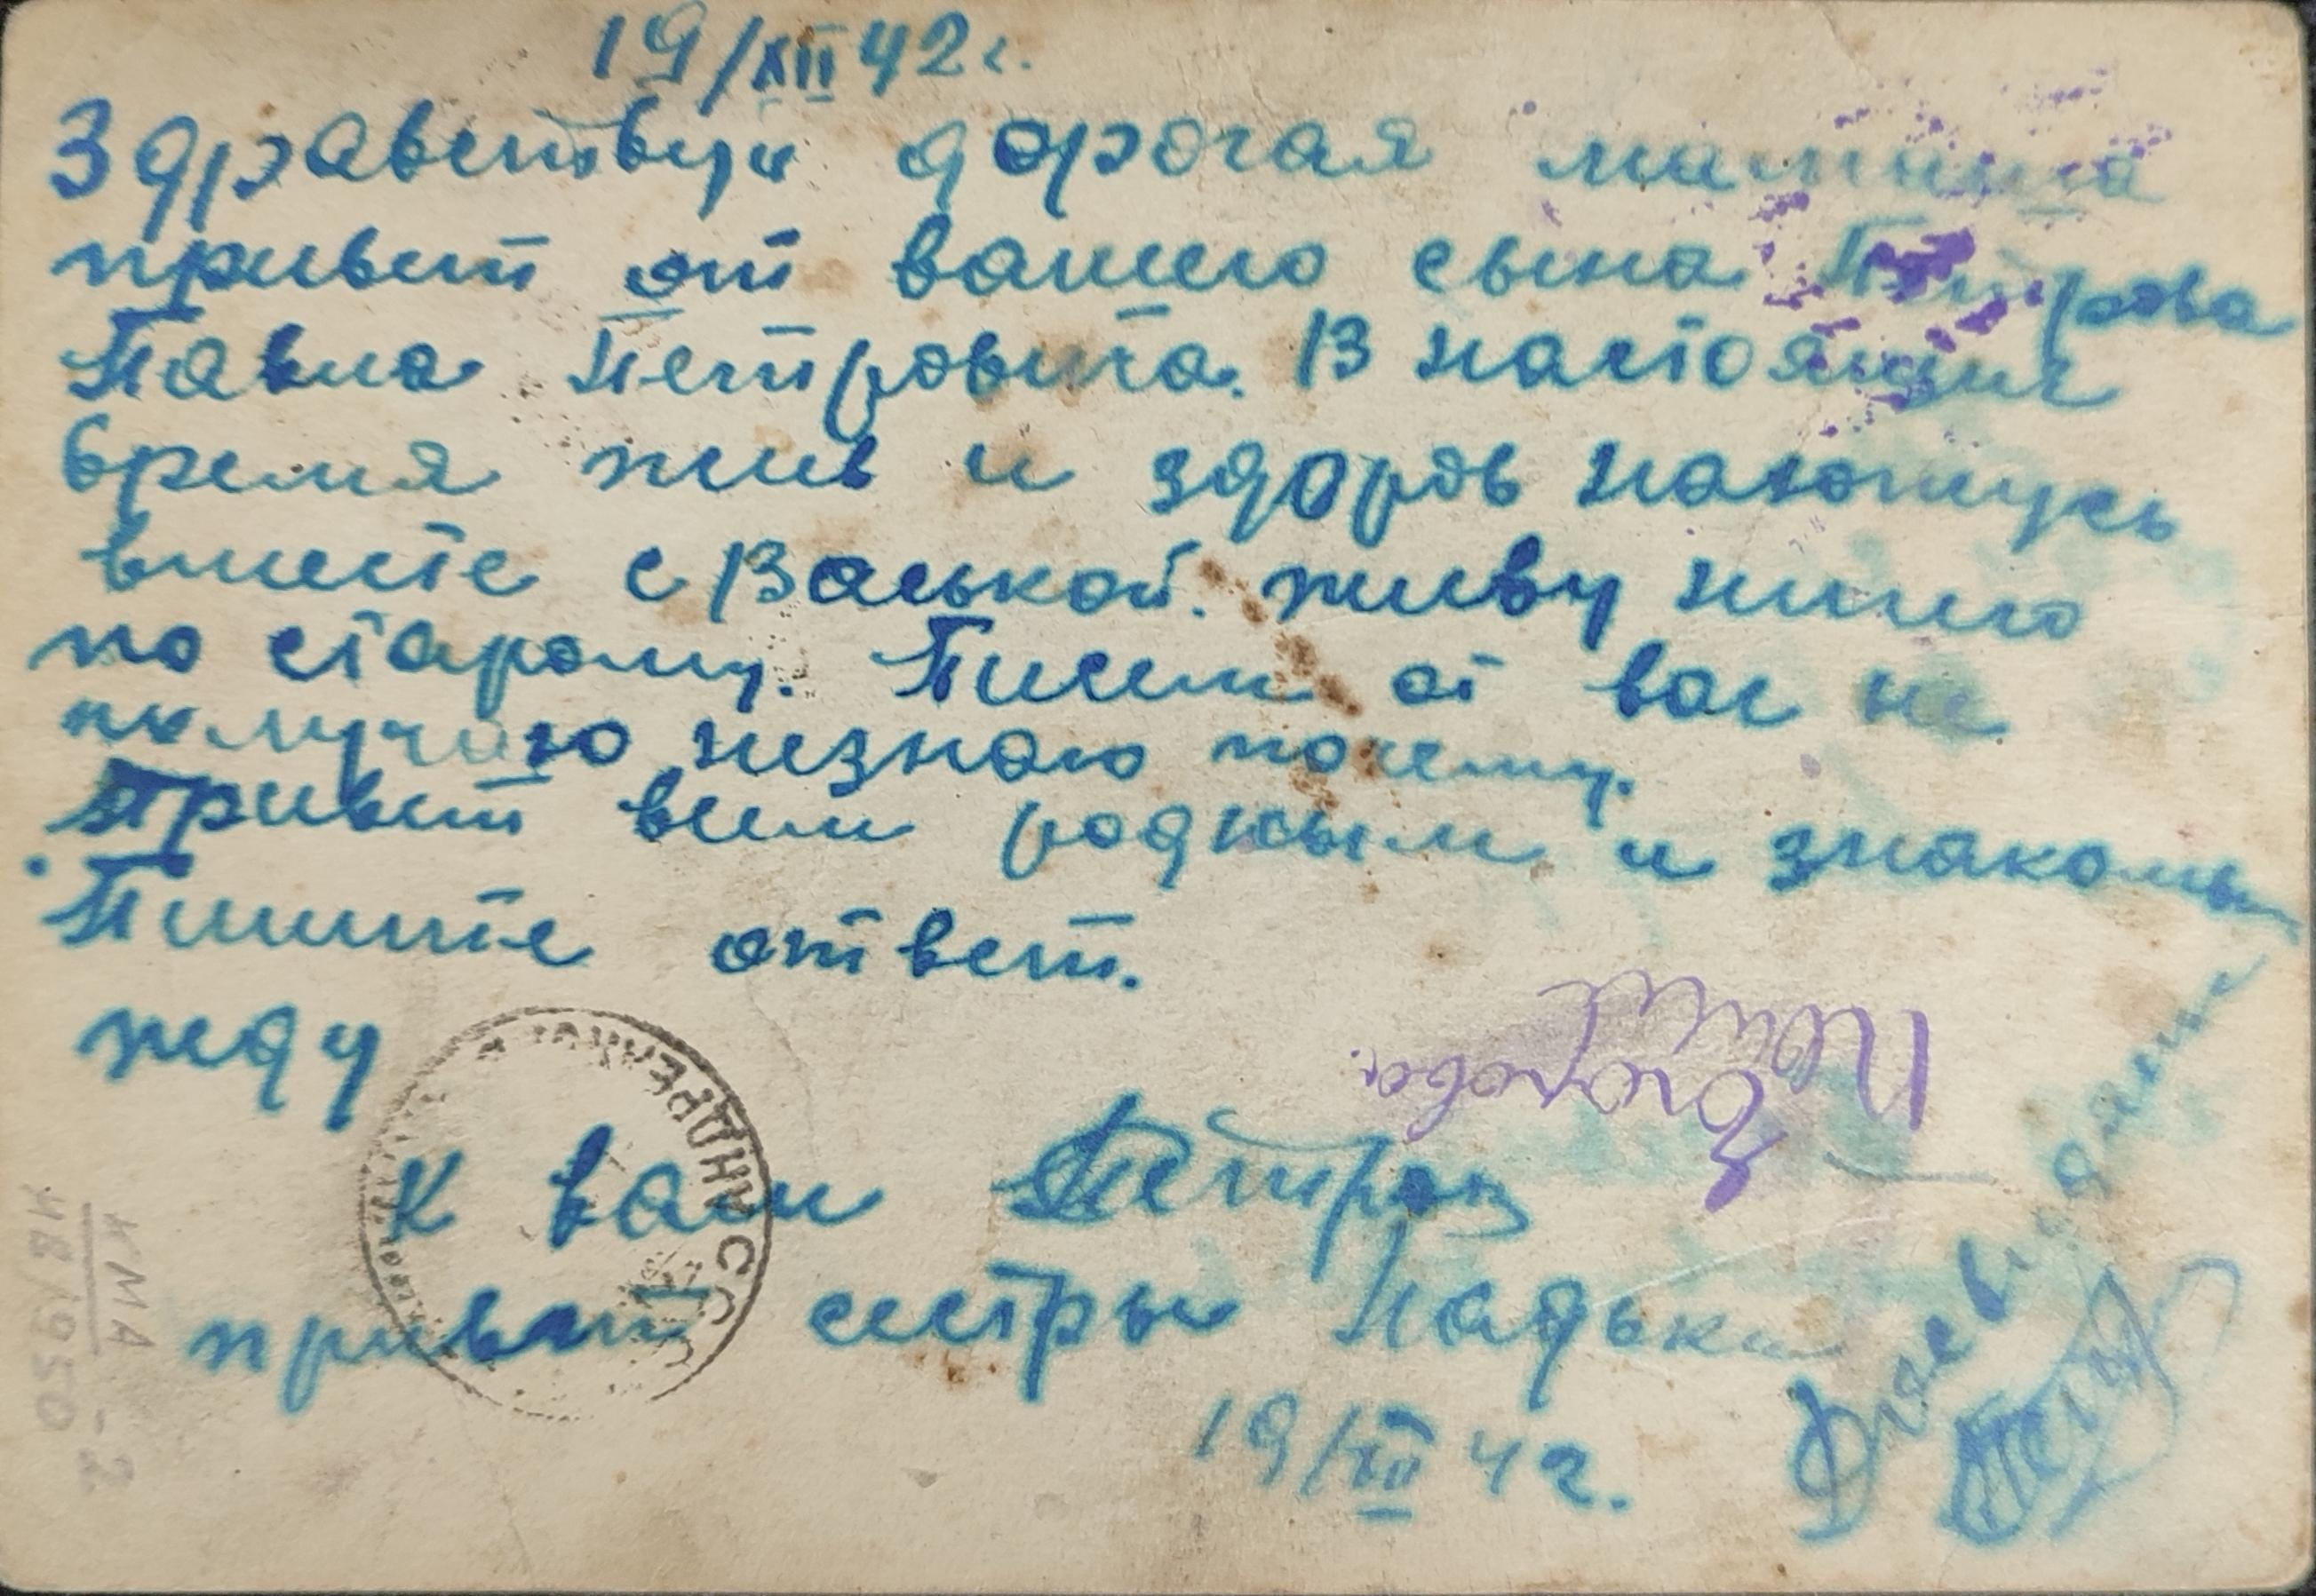 19/XII 42г.
Здравствуй дорогая мамаша
привет от вашего сына Петрова
Павла Петровича. В настоящие
время жив и здоров нахожусь
вместе с Васькой. живу ничего
по старому. Писем от вас не
получаю незнаю почему.
Привет всем родным и знакомым
Пишите ответ.
жду
к вам Петров
привет сестры Надьки
19/XII 42.
До свидания
КМА-2
НВ/1950
АНДРЕ
ССС